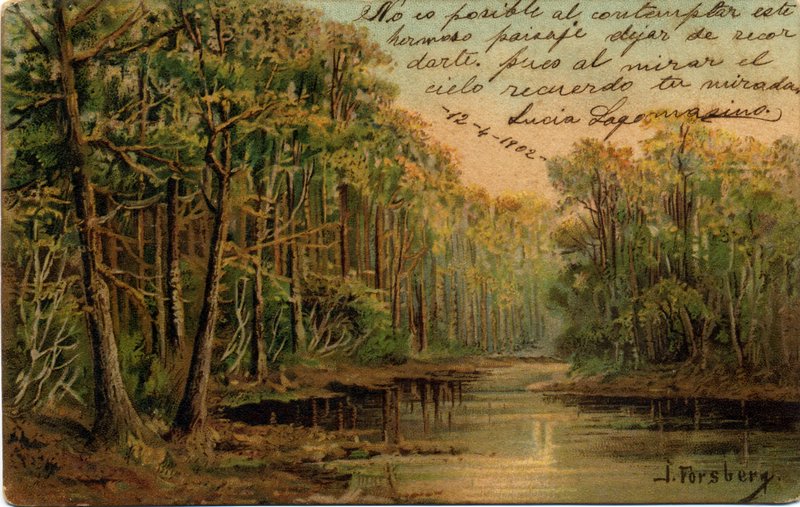 No es posible al contemplar este
hermoso paisaje dejar de recor
darte. pues al mirar el
cielo recuerdo tu mirada
Lucia Lagomasino.
-12-4-1902-
J. Forsberg.